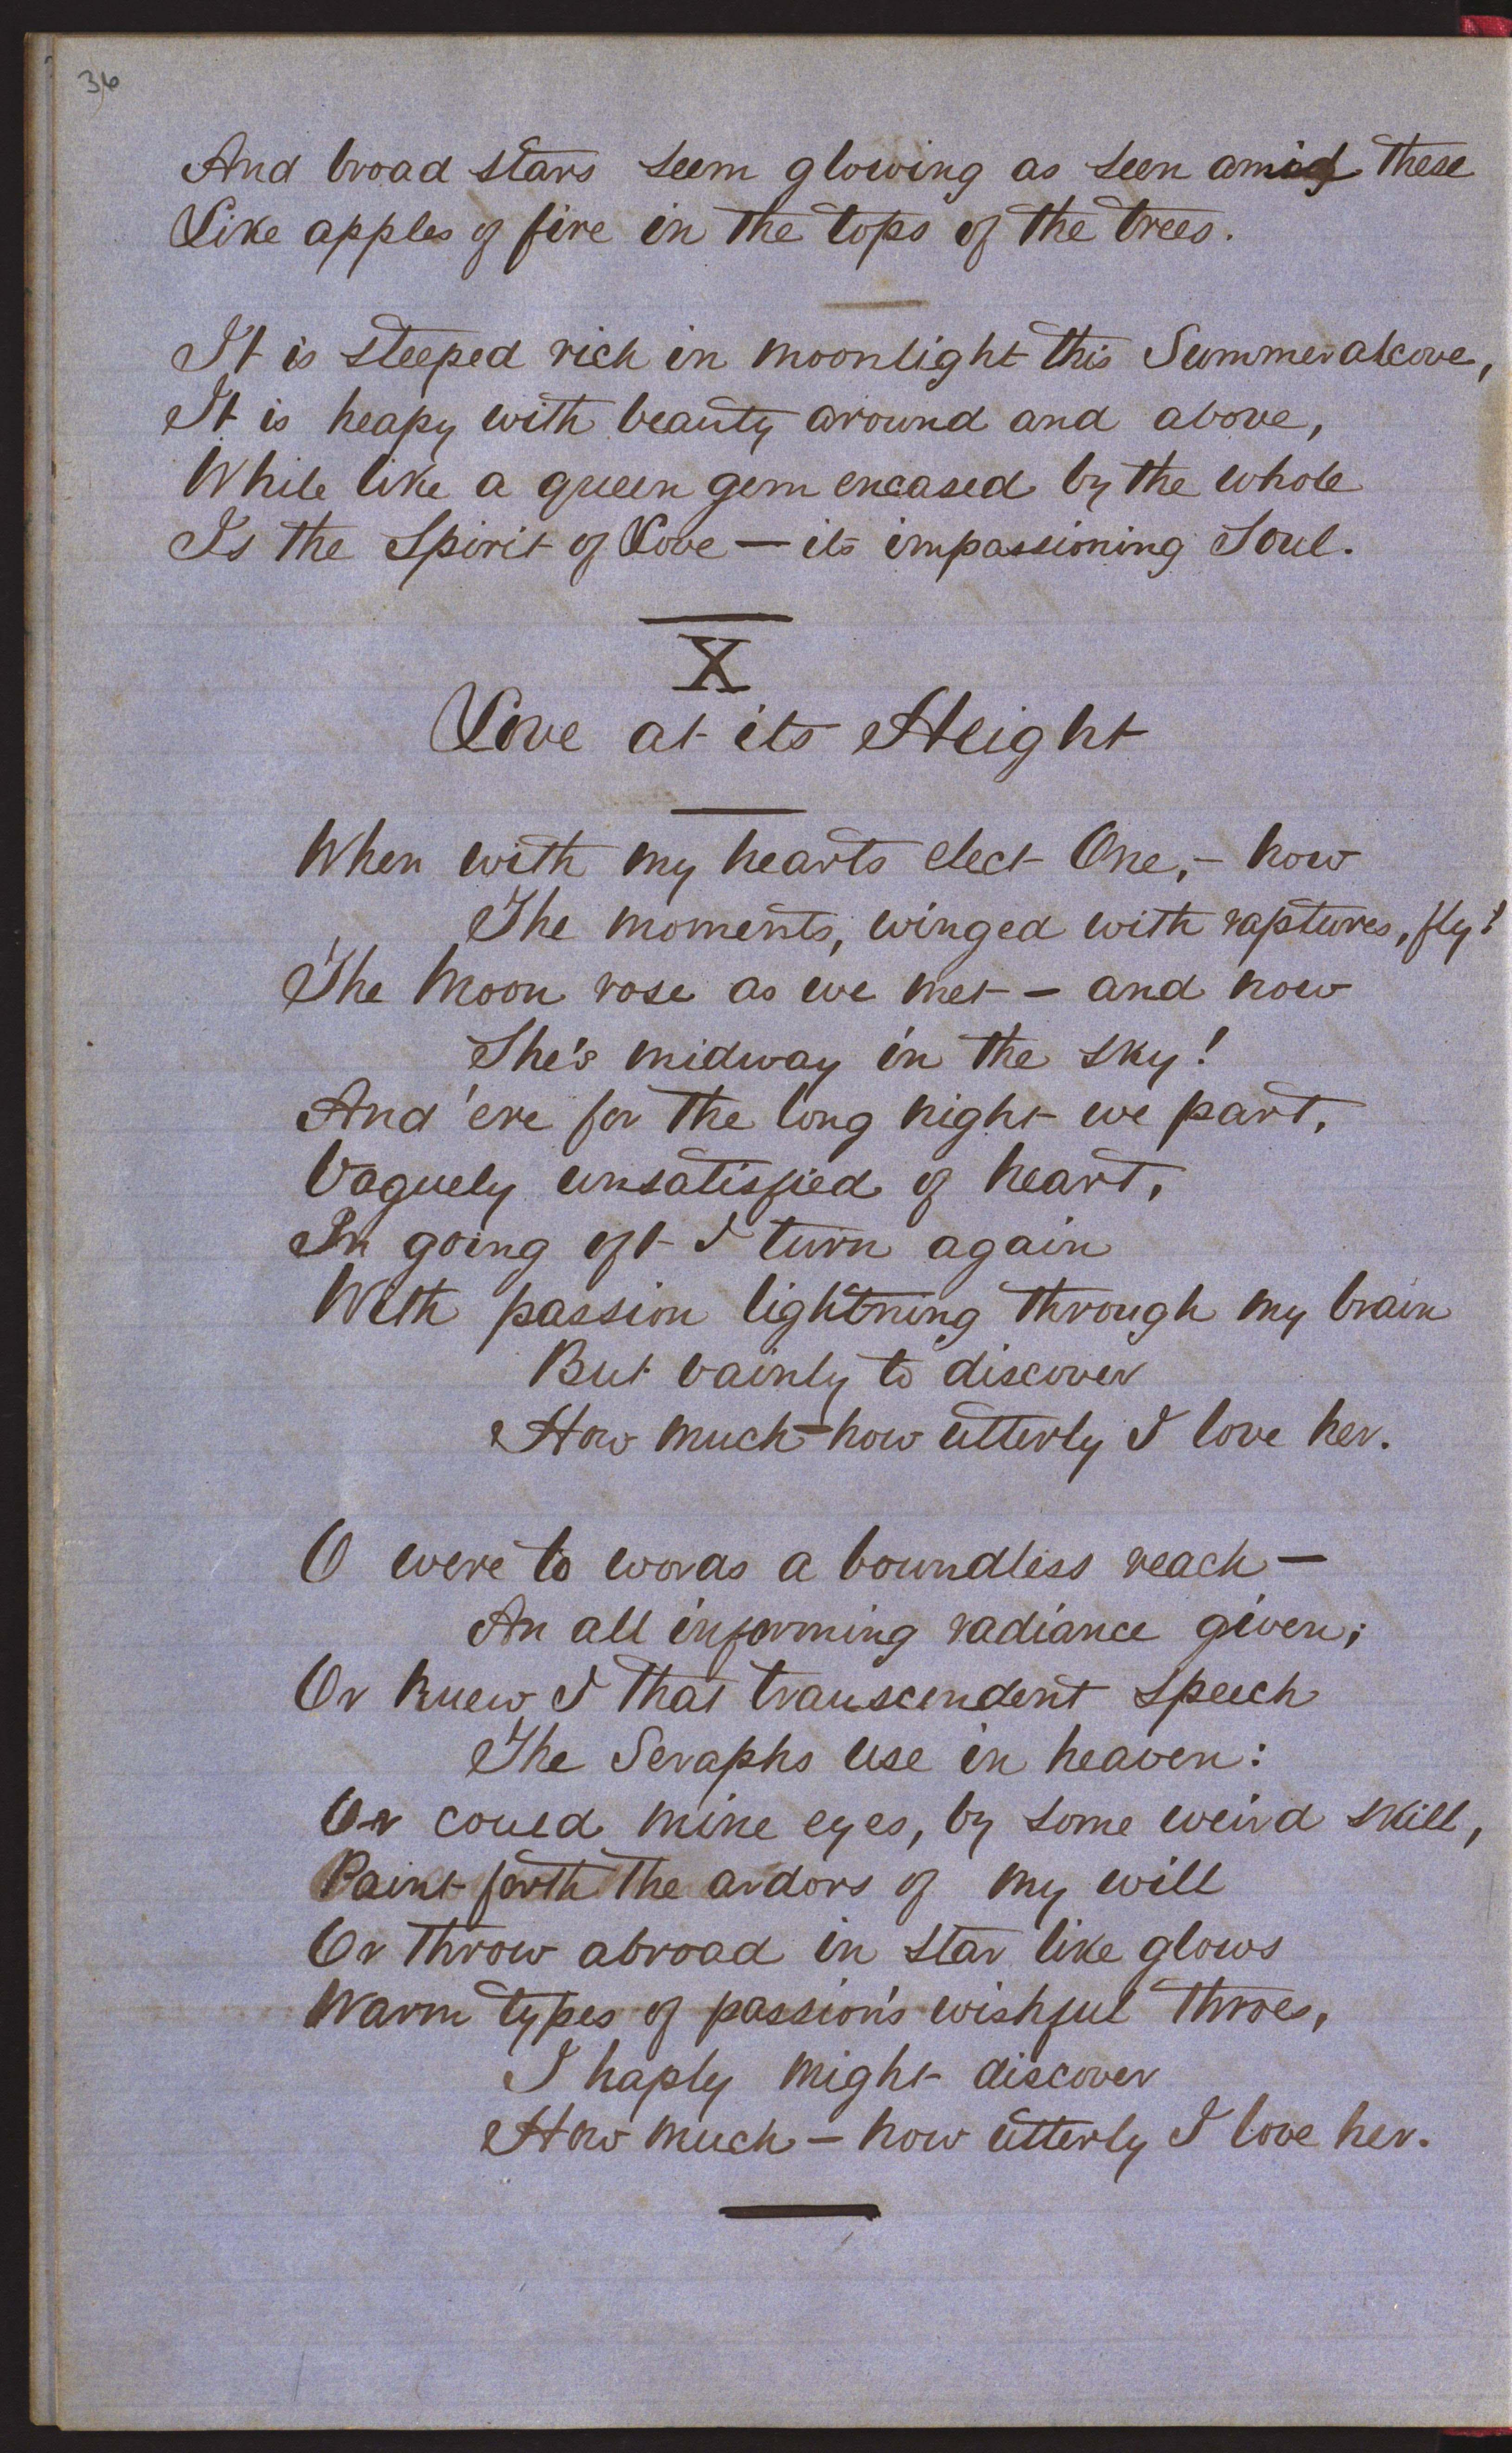 36
And broad stars seem glowing as seen amid these
Like apples of fire in the tops of the trees.
It is steeped rich in moonlight this Summer alcove,
It is heapy with beauty around and above,
While like a queen gem encased by the whole
Is the Spirit of Love — its impassioning Soul.
X
Love at its Height
When with my hearts elect One, – how
The moments, winged with raptures, fly!
The Moon rose as we met – and now
She's midway in the sky!
And 'ere for the long night we part,
Vaguely unsatisfied of heart,
In going oft I turn again
With passion lightning through my brain
But vainly to discover
How much – how utterly I love her.
O were to words a boundless reach —
An all informing radiance given;
Or knew I that transcendent speech
The Seraphs use in heaven:
Or could mine eyes, by some weird skill,
Paint forth the ardors of my will
Or throw abroad in star like glows
Warm types of passion's wishful throes,
I haply might discover
How much – how utterly I love her.